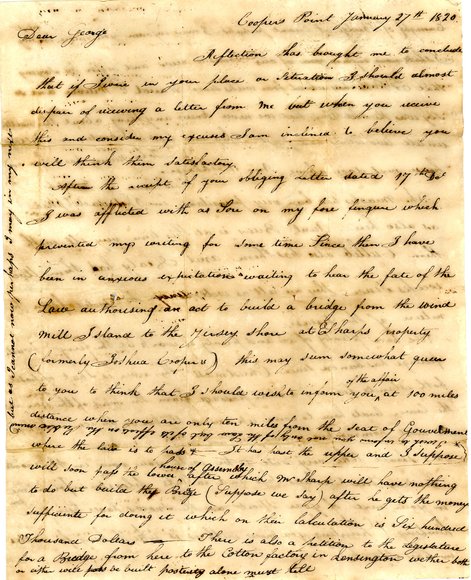 Coopers Point January 27th 1820
Dear George
Reflection has brought me to conclude
that if I were in your place or Situation I should almost
despair of receiving a letter from me but when you receive
this and consider my excuses I am inclined to believe you
will think them Satisfactory
After the receipt of your obliging Letter dated 17th
I was afflicted with a Sore on my fore finger which
prevented my writing for some time Since then I have
been in anxious expectation waiting to hear the fate of the
Law authorising an act to build a bridge from the wind
mill Island to the Jersey Shore at E Sharps property
(formerly Joshua Coopers) this may seem somewhat queer
to you to think that I should wish to inform you, of the affair at 100 miles
distance when you are only ten miles from the Seat of Gouverment
where the law is to pass It has past the upper and I suppose
will soon pass the lower house of Assembly after which Mr Sharp will have nothing
to do but build the Bridge (Suppose we say) after he gets the money
sufficient for doing it which on their calculation is Six hundred
Thousand Dollars There is also a petition to the Legislature
for a Bridge from here to the Cotton factory in Kensington wether both
or either will be built posterity alone must tell
but as I cannot now perhaps I may in my next